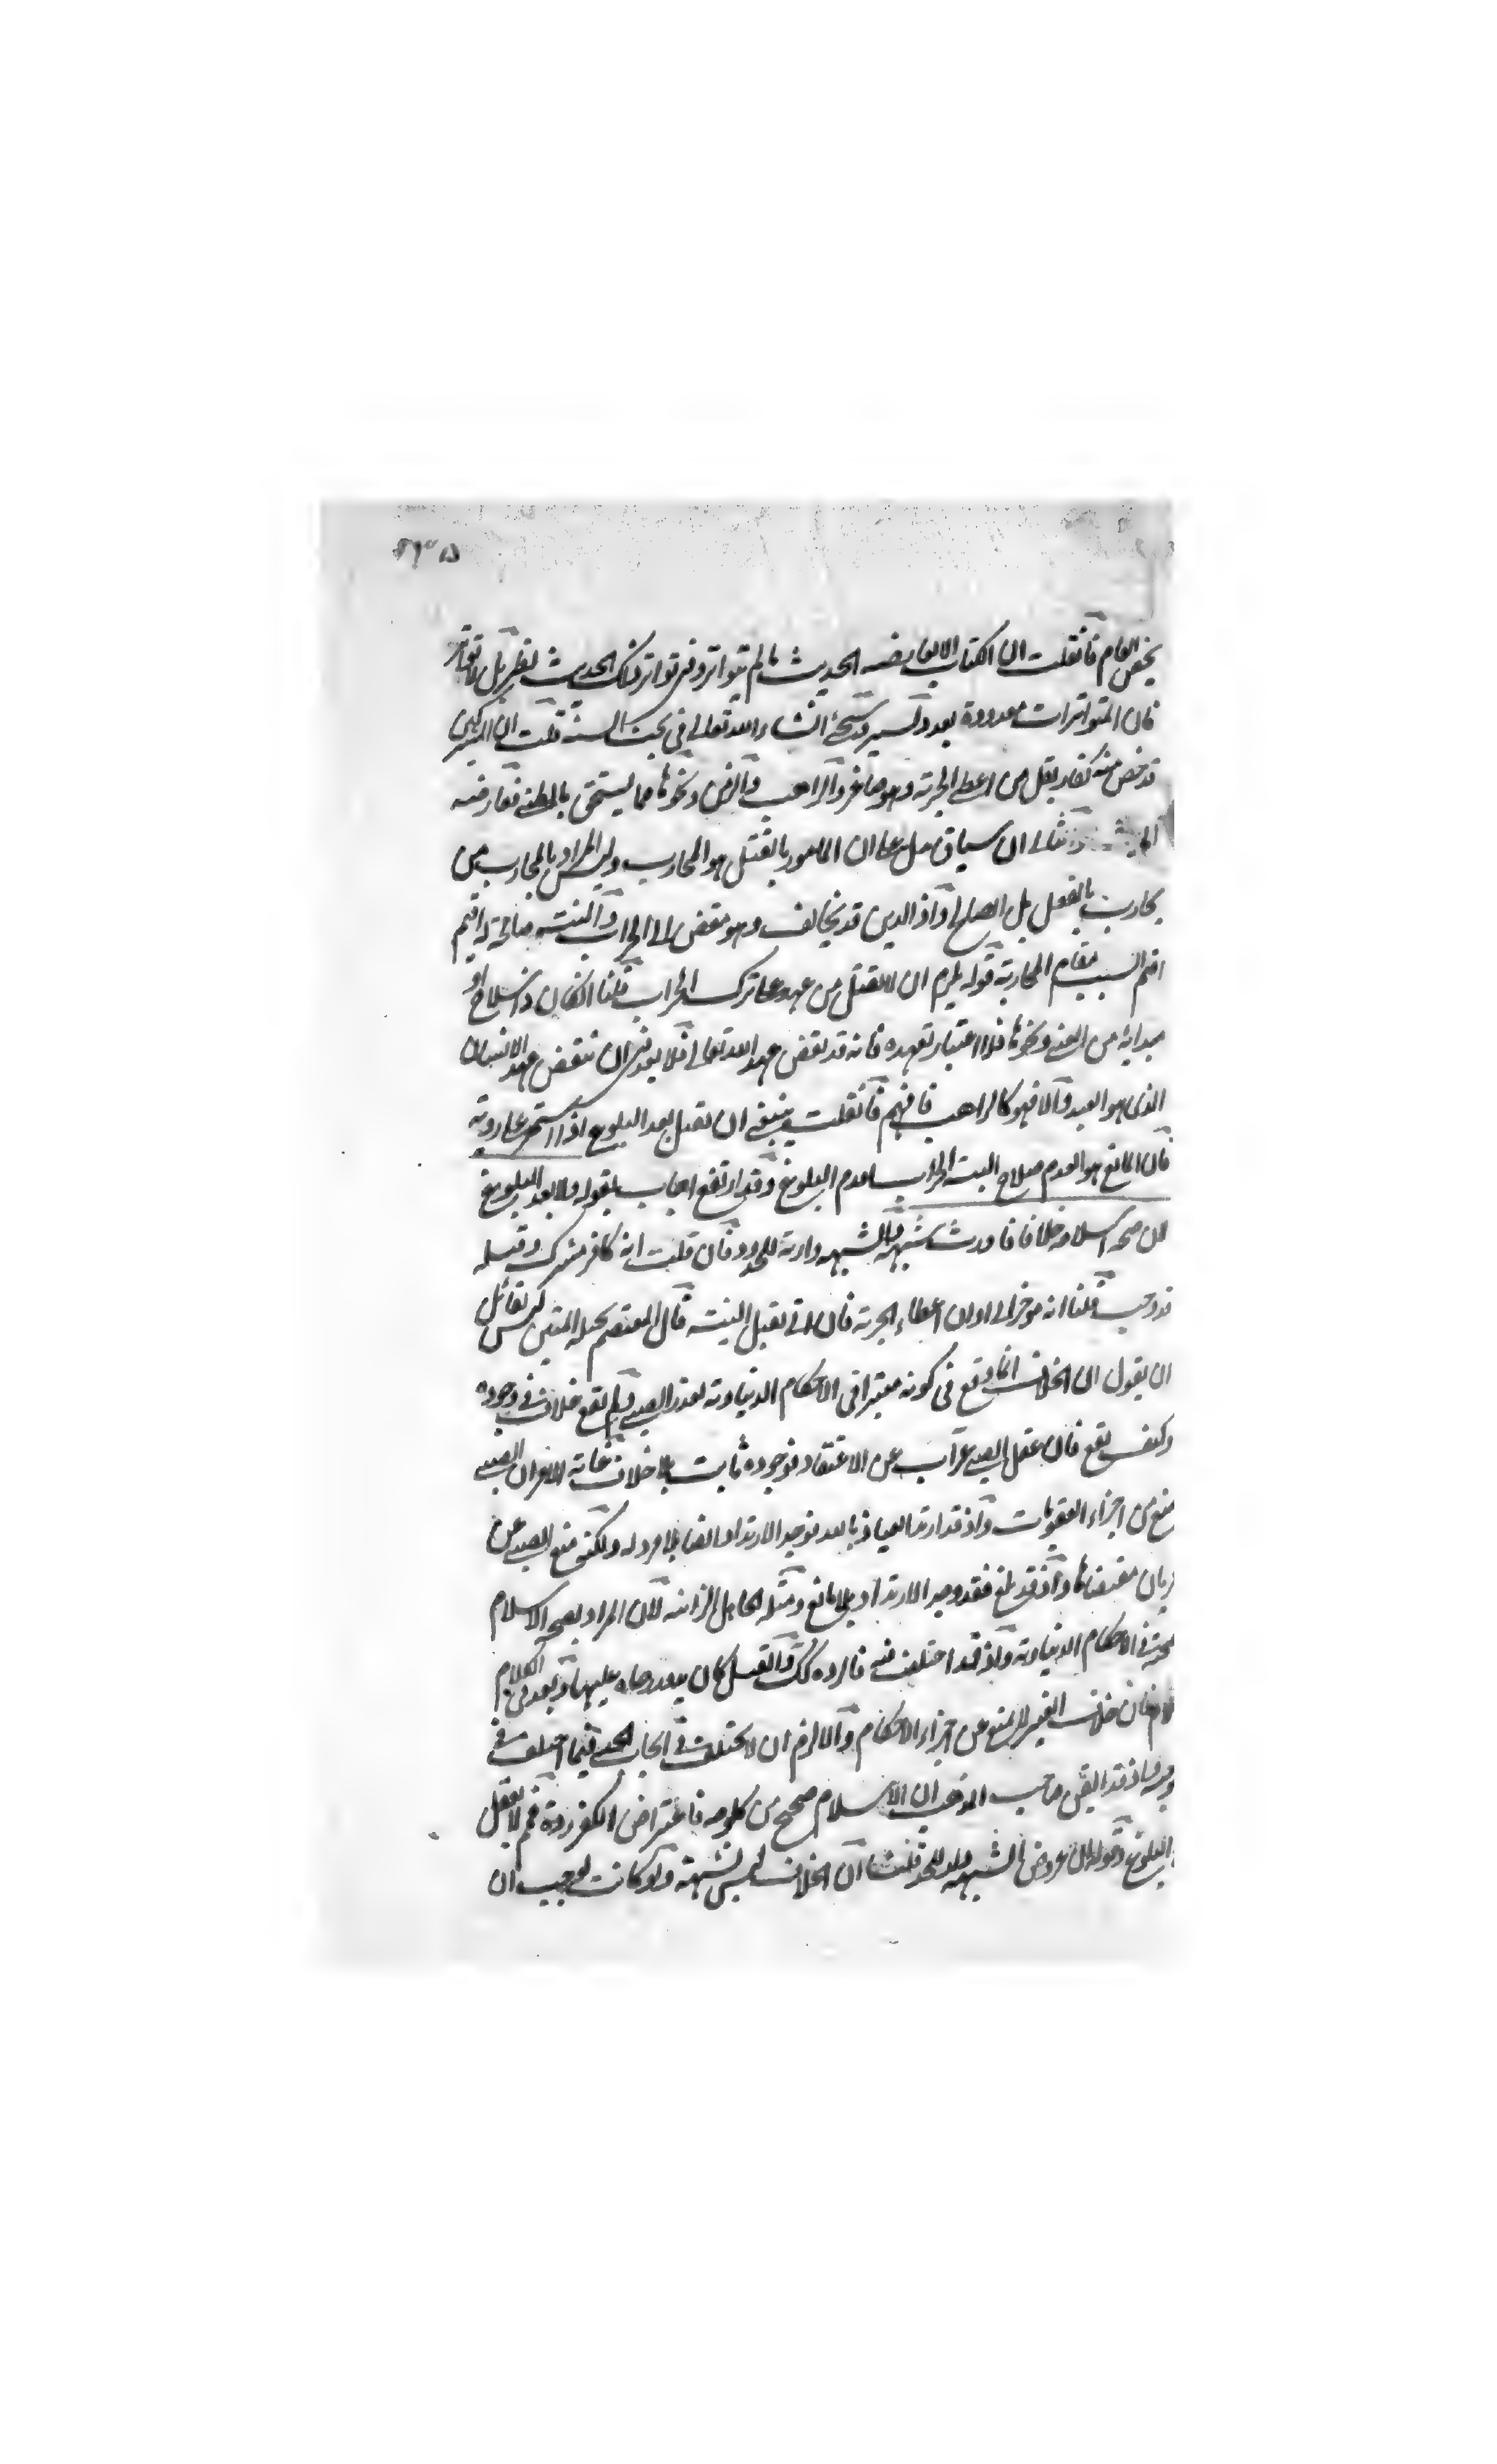 ٥٣٩
يخص العام فانقلت ان الكتاب لا يعارضه الحديث ما لم يتواتر وفى تواتر ذلك الحديث نظر بل لا تواتر
فان المتواترات معدودة بعدد يسير وسيجئ انشاء الله تعالى فى بحث السنة قلت ان المشركين
قد خص منه كفار بقل من اعطى الجزية وهو صاغر والراهب والزمن ونحوها مما يستحق بالمطعن فعارضه
الحديث وثالث ان سياق يدل على ان المامور بالقتل هو المحارب وليس المراد بالمحارب من
يحارب بالفعل بل الصالح له واذ الدين قد يخالف وهو مفض الى الحراب والبنية صالحة له اقيم
اقيم السبب مقام المحاربة قوله يلزم ان لا يقتل من عهد على ترك الحراب قلنا ان كان ذا سلاح او
مبداية من الغنى ونحوها فلا اعتبار لعهده فانه قد نقض عهد الله تعالى فلا بعد فى ان ينقض عهد الانسان
الذى هو العبد والا فهو كالراهب فافهم فانقلت ينبغى ان تقتل بعد البلوغ اذا استمر على ردته
فان المانع هو العدم صلاح البنية الحراب لعدم البلوغ وقد ارتفع اجاب بقوله ولا بعد البلوغ
لان صحة اسلامه خلافا فاورث شبهة والشبهة دارئة للحدود فان قلت انه كافر مشرك وقتله
قد وجب قلنا انه مؤخر الى اوان اعطاء الجزية فان لم تقبل البنية قال المعتصم بحبله المتين لقائل
ان يقول ان الخلاف انما وقع فى كونه معتبرا فى الاحكام الدنياوية لعذر الصبى ولم يقع خلاف فى وجوده
وكيف يقع فان عقل الصبى غير آب عن الاعتقاد فوجوده ثابت بلا خلاف غاية الامر ان الصبى
منع من اجراء العقوبات واذ قد ارتد العياذ بالله فوجد الارتداد ايضا بلا مرد له ولكن منع الصبى عن
جريان مقتضاها واذ قد بلغ فقد وجد الارتداد بلا مانع ومثله الحامل الزانية لان المراد بصحة الاسلام
صحته فى الاحكام الدنياوية واذ قد اختلف فيه فالردة كك والقتل كان بعد وجاه عليها وبعد فى الكلام
كلام فان خلاف الغير لا يمنع عن اجراء الاحكام والا لزم ان لا يختلف فى ايجاب الحد فيما اختلف فى
وجوبه واذ قد ايقن صاحب المذهب ان الاسلام صحيح من كلومه فاعتراض الكفر ردة فلم لا يقتل
بعد البلوغ وقوله لان عروض الشبهة دارء للحد قلنا ان الخلاف ليس بشبهة ولو كانت لوجب ان